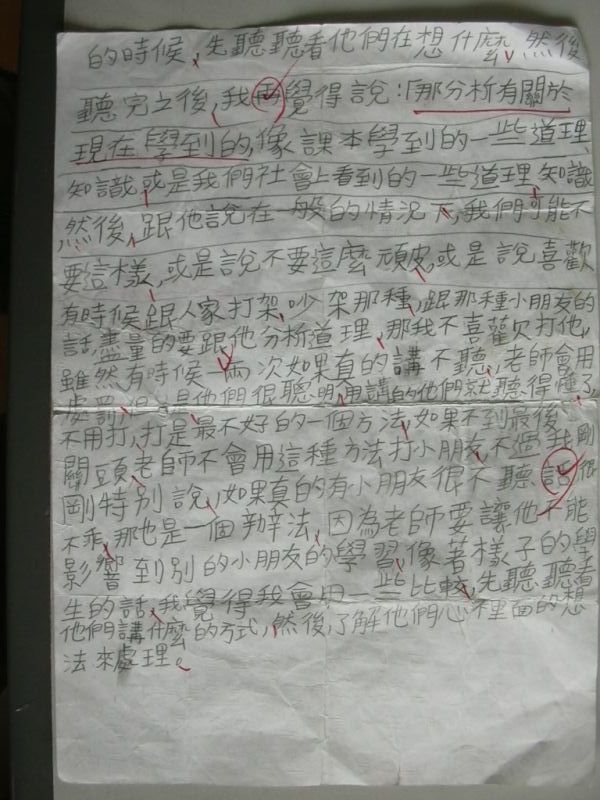 的時候，先聽聽看他們在想什麼，然後
聽完之後，我會覺得說：「那分析有關於
現在學到的，像課本學到的一些道理
知識，或是我們社會上看到的一些道理、知識
然後，跟他說在一般的情況下，我們可能不
要這樣，或是說不要這麼頑皮，或是說喜歡
有時候跟人家打架、吵架那種，跟那種小朋友的
話盡量的要跟他分析道理，那我不喜歡打他，
雖然有時候一兩次如果真的講不聽，老師會用
處罰，但是他們很聰明，用講的他們就聽得懂了，
不用打，打是最不好的一個方法，如果不到最後
關頭，老師不會用這種方法打小朋友，不過我剛
剛特別說，如果真的有小朋友很不聽話，很
不乖，那也是一個辦法，因為老師要讓他不能
影響到別的小朋友的學習，像著樣子的學
生的話，我覺得我會用一些比較，先聽聽看
他們講什麼的方式，然後，了解他們心裡面的想
法來處理。